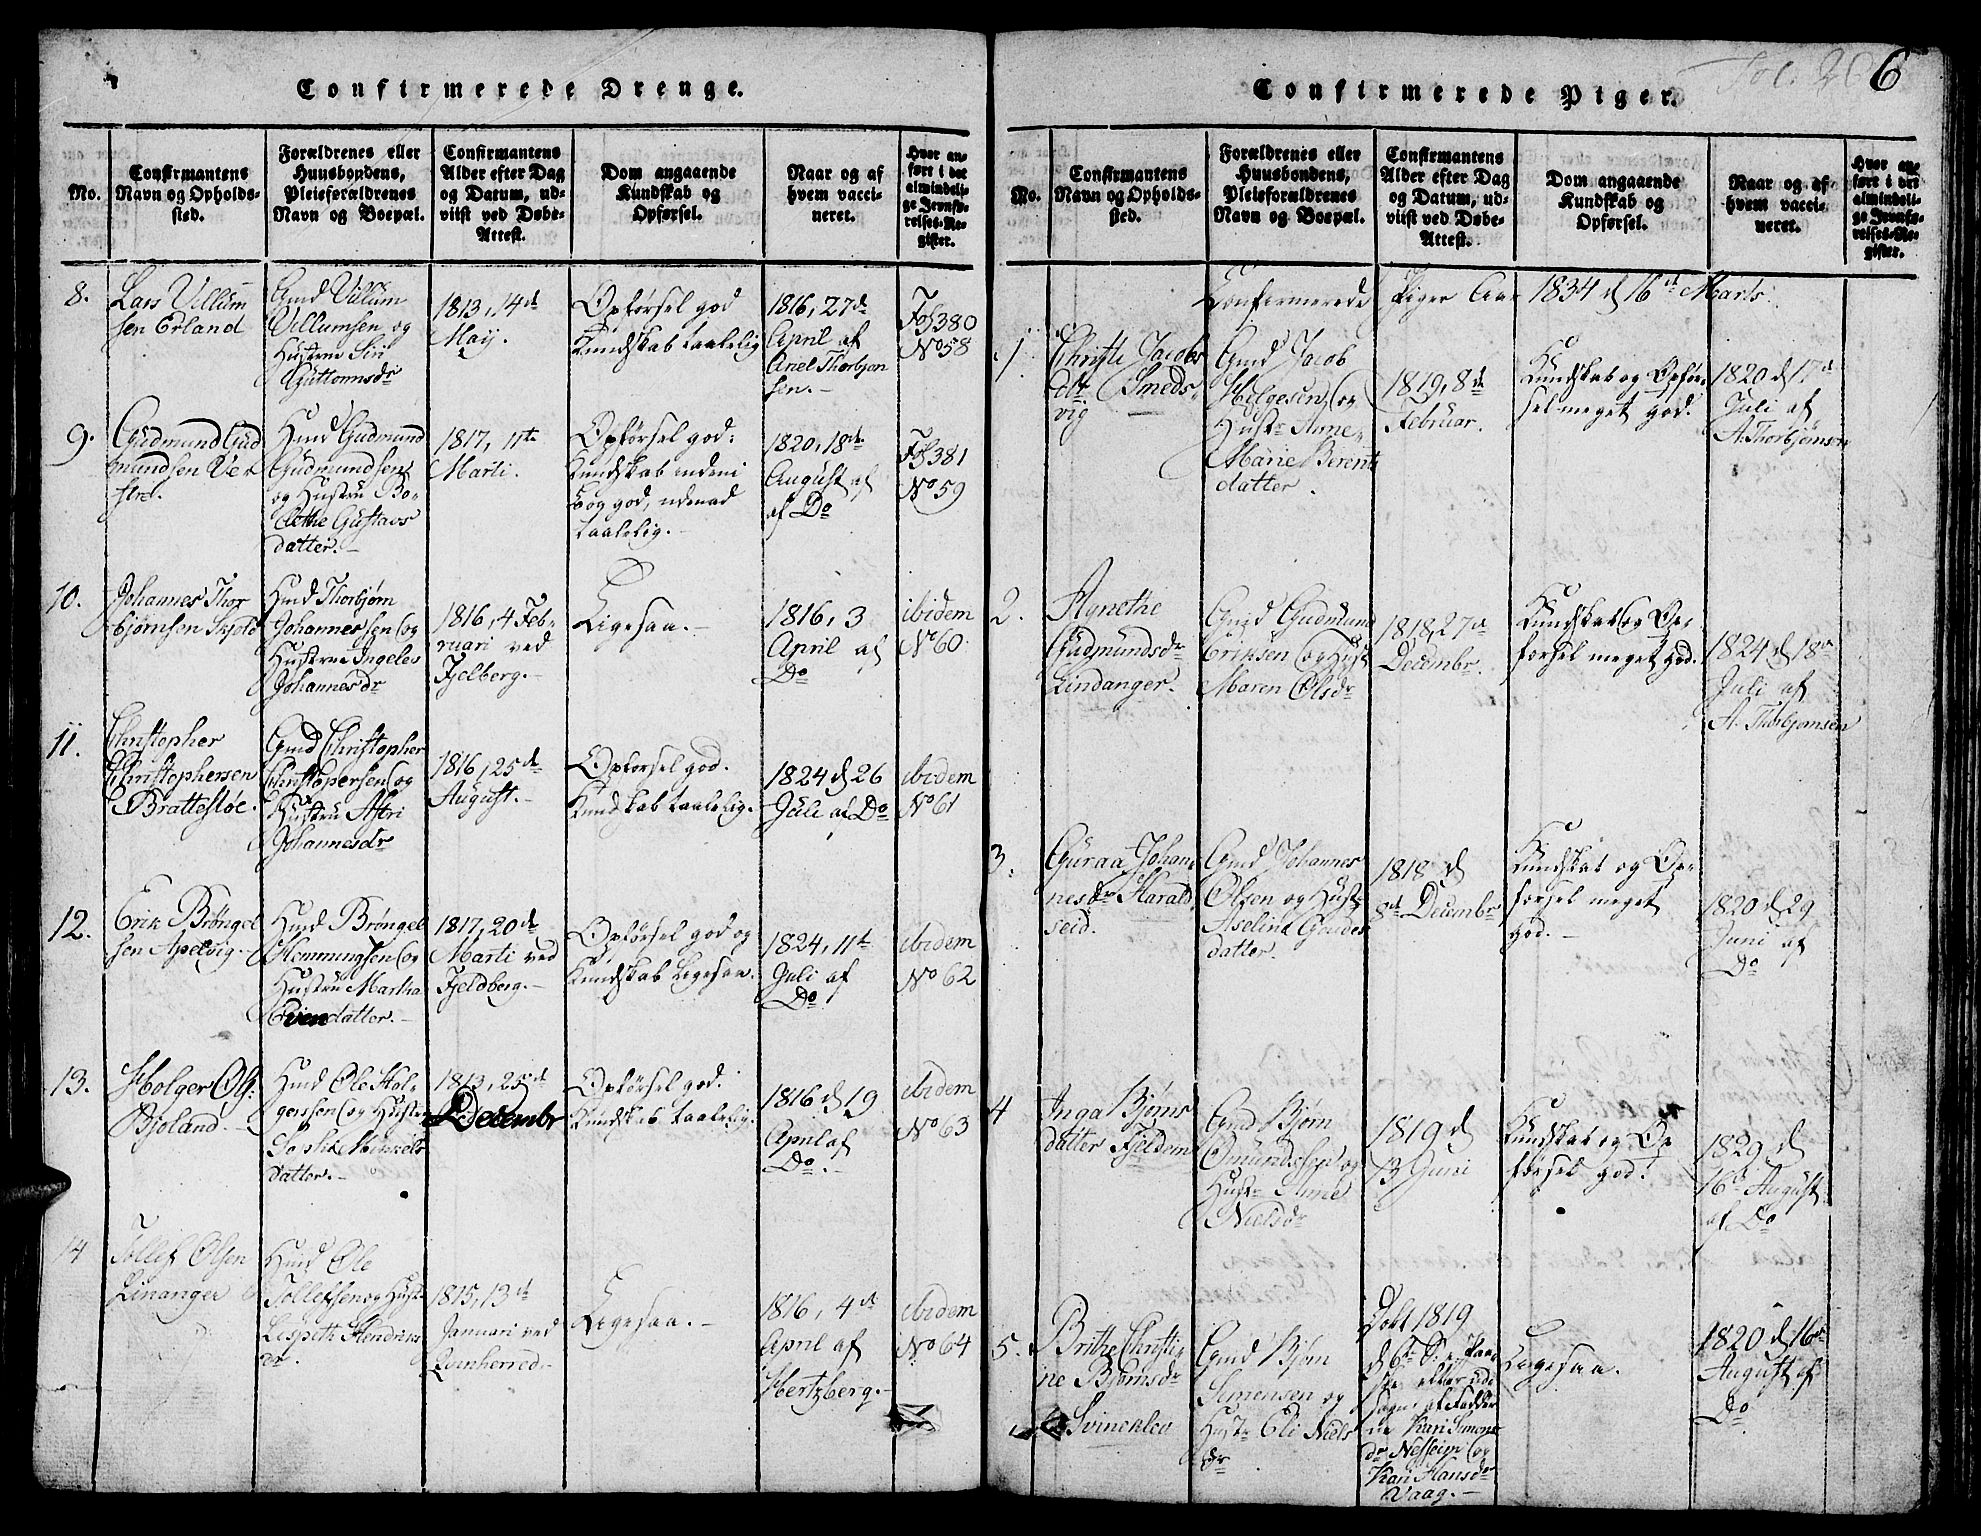 Confirmerede Drenge.
No.
Confirmantens
Navn og Opholds-
sted.
Forældrenes eller
Huusbondens,
Pleieforældrenes
Navn og Boepæl.
Confirmantens
Alder efter Dag
og Datum, ud-
viist ved Døbe-
Attest.
Dom angaaende
Kundskab og
Opførsel.
Naar og af
hvem vacci-
neret.
Hvor an-
ført i det
almindeli-
ge Jevnfø-
relses-Re-
gister.
8.
Lars Villum
sen Erland
Gmd Villum
Villumsen og
Hustrue Siri
Guttormsdr
1813, 4de
Maij.
Opførsel god
Kundskab taalelig
1816, 27de
April af
Anel Thorbjøn
sen.-
Fol 380
No 58
9.
Gudmund Gud
mundsen Ve
stre.
Hmd Gudmund
Gudmundsen
og Hustru Bo-
lethe Gustavs
datter.-
1817, 11te
Marti.
Opførsel god.
Kundskab indeni
bog god, udenad
taalelig.-
1820, 18de
August af
af Do
Fol 381
No 59
10.
Johannes Thor
bjørnsen Skjold
Hmd Thorbjørn
Johannessen og
Hustrue Ingelev
Johannesdr
1816, 4 Feb-
ruari ved
Fjelberg.-
Ligesaa.-
1816, 3
April af
Do
ibidem
No 60
11.
Christopher
Christophersen
Brattestøe.
Gmd Christopher
Christopersen og
Hustru Astri
Johannesdr
1816, 25de
August.-
Opførsel god.
Kundskab taalelig.
1824 d 26
Juli af Do
ibidem
No 61
12.
Erik Brøngel
sen Apelvig.-
Hmd Brøngel
Hemmingsen og
Hustru Martha
Evendatter.-
1817, 20de
Marti ved
Fjeldberg.-
Opførsel god og
Kundskab Ligesaa.
1824, 11te
Juli af
Do
ibidem
No 62
13.
Holger Ols:
Bjoland.-
Hmd Ole Hol-
gerssen og Hustr
Sophie Mikkels
datter.-
1813, 25de
Decembr
Opførsel god.
Kundskab taalelig.
1816 d 19
April af
Do.-
ibidem
No 63
14
Tollef Olsen
Linanger
Hmd Ole
Tollefsen og Hust
Lispeth Hendriks
dr.
1815, 13de
Januari ved
Qvinherred.-
Ligesaa.-
1816, 4de
April af
Hertzberg.-
ibidem
No 64
Fol. 26
6
Confirmerede Piger.
No.
Confirmantens
Navn og Opholds-
sted.
Forældrenes eller
Huusbondens,
Pleieforældrenes
Navn og Boepæl.
Confirmantens
Alder efter Dag
og Datum, ud-
viist ved Døbe-
Attest.
Dom angaaende
Kundskab og
Opførsel.
Naar og af
hvem vacci-
neret.
Hvor an-
ført i det
almindeli-
ge Jevnfø-
relses-Re-
gister.
Confirmerede Piger Aar 1834 d 16de Marts.
1
Christe Jacobs
dtr Smeds-
vig
Gmd Jacob
Helgesen og
Hustr Anne
Marie Berents
datter.
1819, 8de
Februar.
Kundskab og Opfør-
sel meget god.
1820 d 17de
Juli af
A. Thorbjørnsen
2.
Agnethe
Gudmundsdr
Lindanger.
Gmd Gudmund
Eriksen og Hust
Maren Olsdr
1818, 27de
Decembr.
Kundskab og Op-
førsel meget god.
1824 d 18de
Juli af
A. Thorbjørnsen
3.
Guraa Johan
nesdr Harald
seid.
Gmd Johannes
Olsen og Hustr
Aselina Goudes
datter.
1818 d
8de Decembr
Kundskab og Op-
førsel meget
god.-
1820 d 29
Juni af
Do
4
Inga Bjørns
datter Fjeldem
Gmd Bjørn
Omundssen og
Hustr Anne
Nielsdr
1819 d
13 Juni
Kundskab og Op
førsel god.
1829 d
16de August
af Do
5.
Brithe Christi
ne Bjørnsdr
Svinekleo
Gmd Bjørn
Simensen og
Hustr Eli Niels
dr
Døbt 1819
d 6te S: e: Paa
ske efter ud-
sagn af Fadder
ne Kari Simons
dr Nesseim og
Kari Hansdr
Vaag.-
Ligesaa.
1820 d 16de
August af
Do